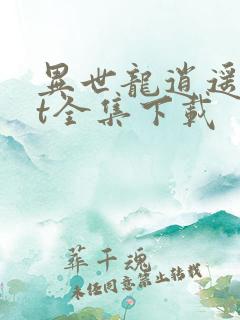 異世龍逍遥
t全集下载
華千魂
未经同意禁止转载